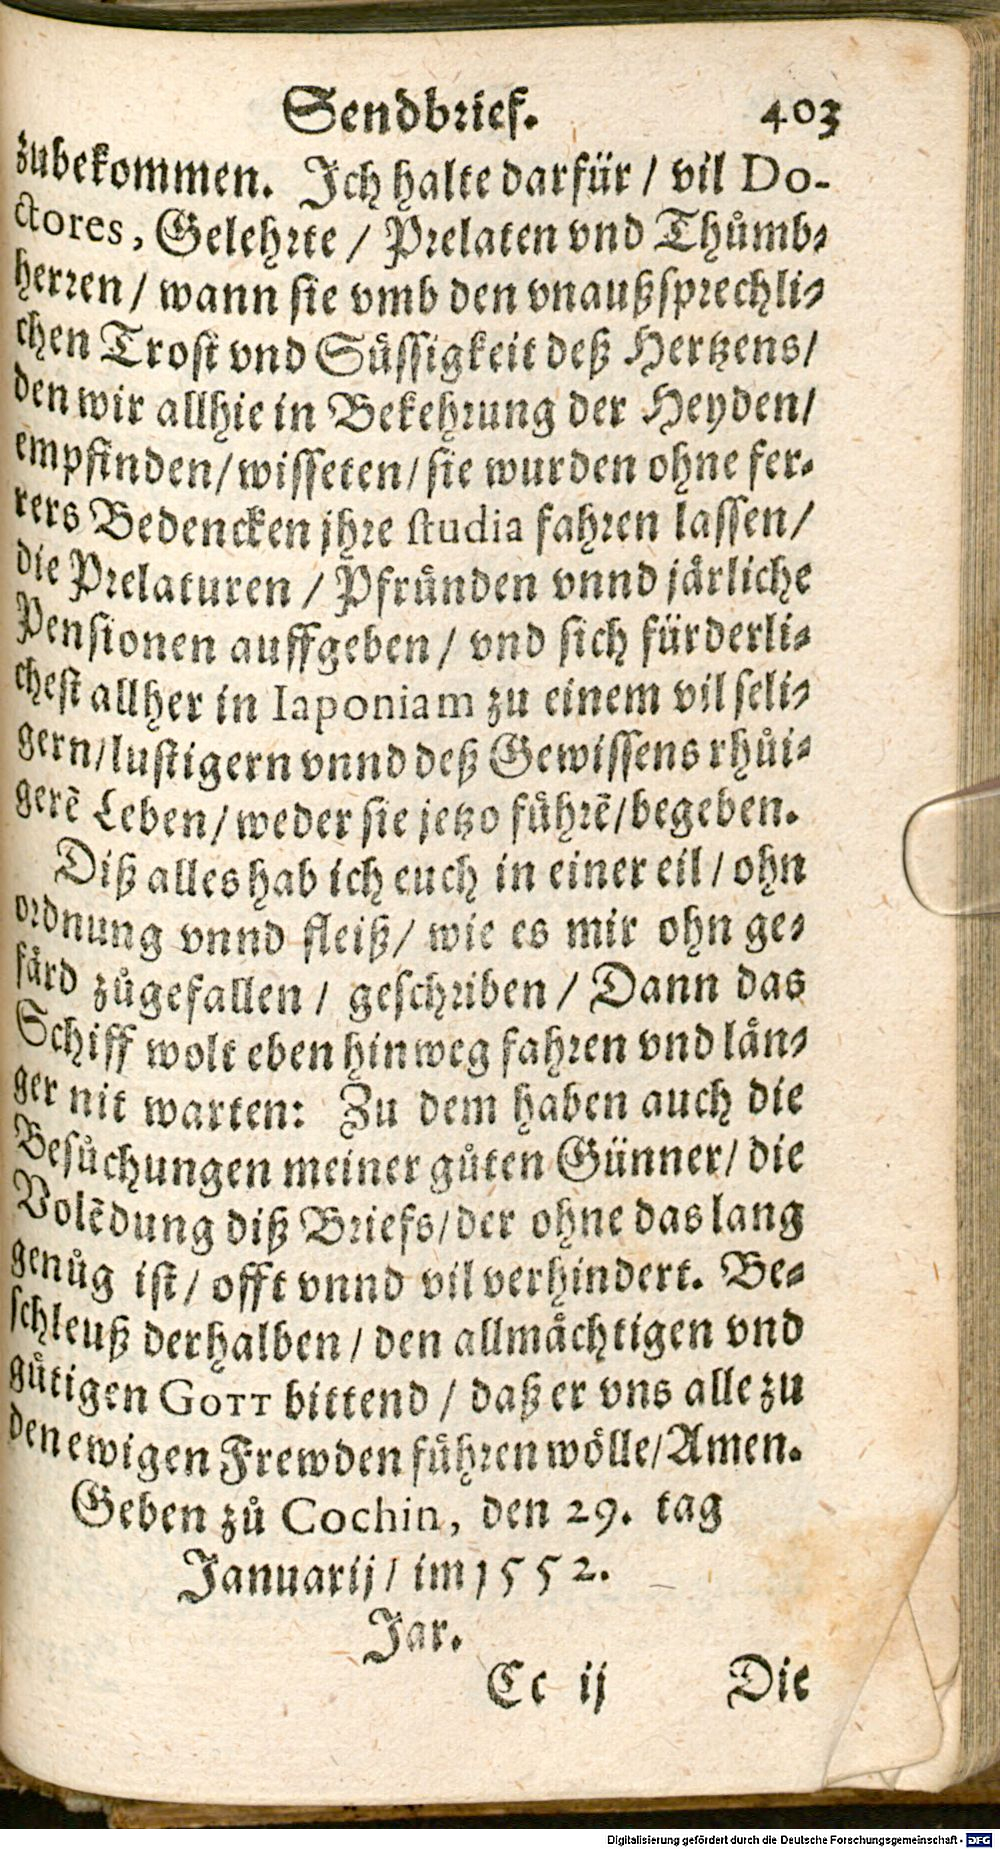 Sendbrief. 403
zubekommen. Ich halte darfür / vil Do-
ctores, Gelehrte / Prelaten vnd Thůmb-
herren / wann sie vmb den vnaußsprechli-
chen Trost vnd Süssigkeit deß Hertzens /
den wir allhie in Bekehrung der Heyden /
empfinden / wisseten / sie wurden ohne fer-
rers Bedencken jhre studia fahren lassen /
die Prelaturen / Pfründen vnnd järliche
Pensionen auffgeben / vnd sich fürderli-
chest allher in Iaponiam zu einem vil seli-
gern / lustigern vnnd deß Gewissens rhůi-
gerẽ Leben / weder sie jetzo führẽ / begeben.
Diß alles hab ich euch in einer eil / ohn
ordnung vnnd fleiß / wie es mir ohn ge-
färd zůgefallen / geschriben / Dann das
Schiff wolt eben hinweg fahren vnd län-
ger nit warten: Zu dem haben auch die
Besůchungen meiner gůten Günner / die
Volẽdung diß Briefs / der ohne das lang
genůg ist / offt vnnd vil verhindert. Be-
schleuß derhalben / den allmächtigen vnd
gütigen GOTT bittend / daß er vns alle zu
den ewigen Frewden führen wölle / Amen.
Geben zů Cochin, den 29. tag
Januarij / im 1552.
Jar.
Cc ij Die
Digitalisierung gefördert durch die Deutsche Forschungsgemeinschaft - DFG